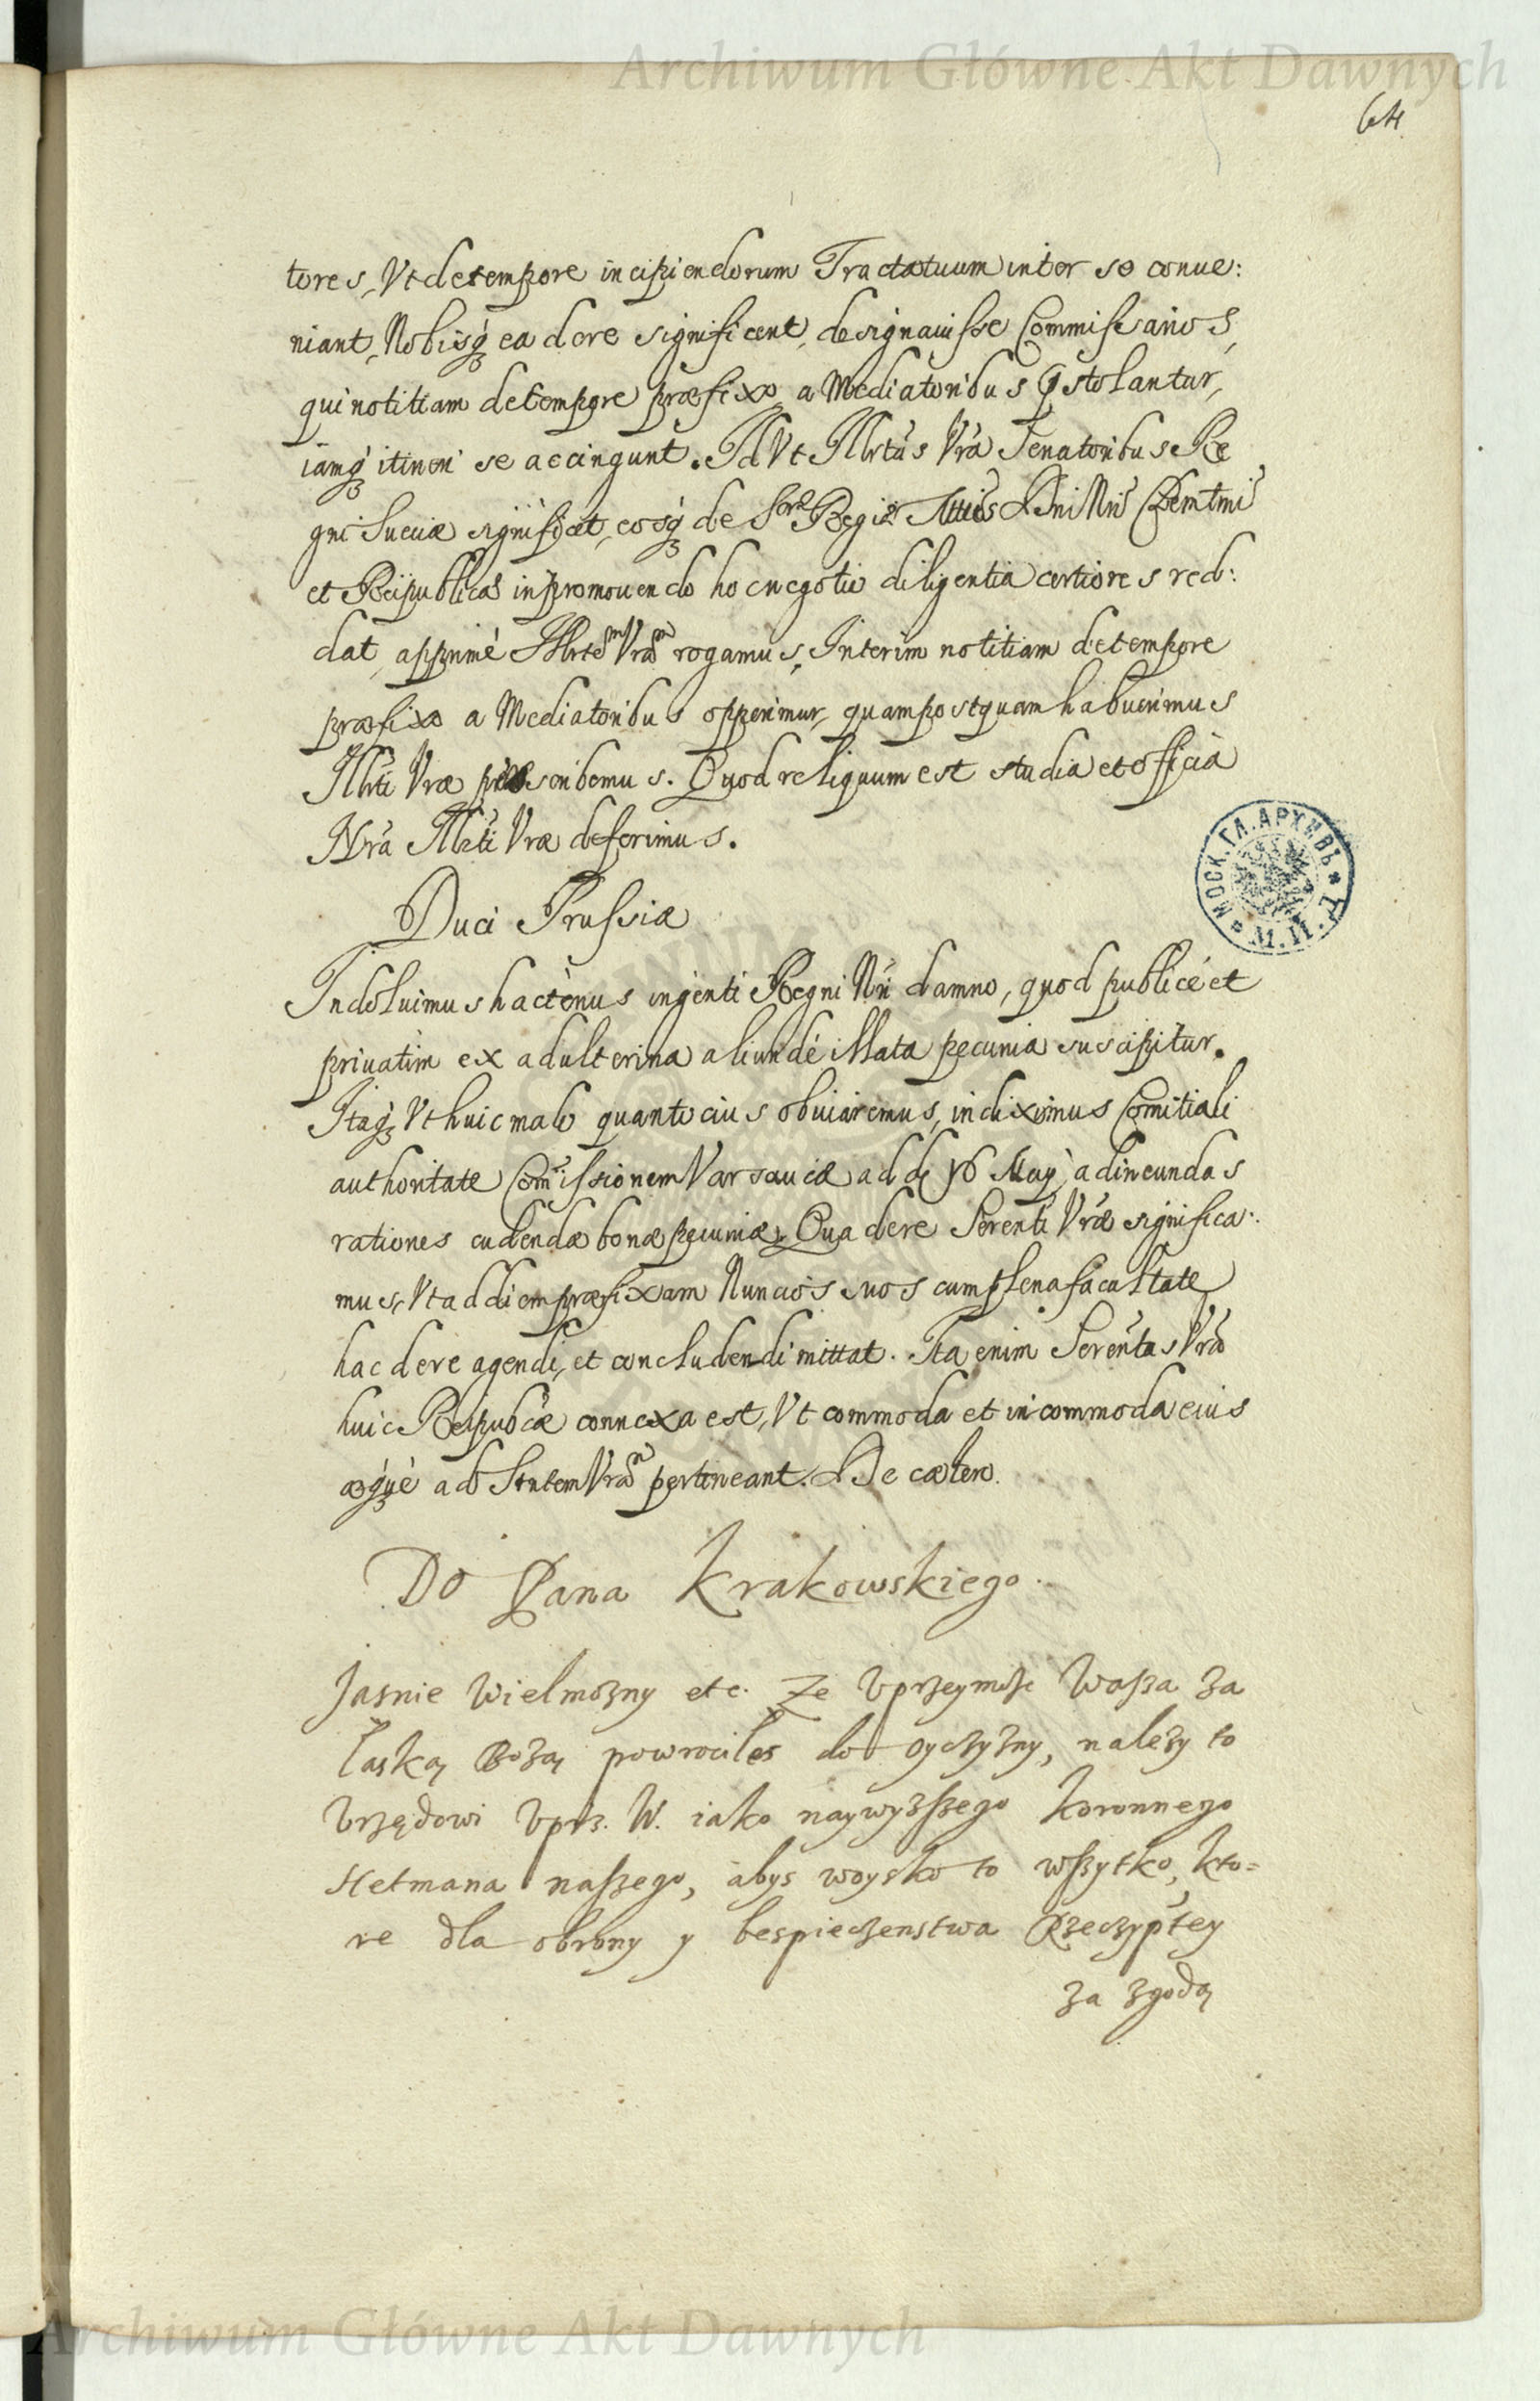 Archiwum Główne Akt Dawnych
64
tores, Vt de tempore incipiendorum Tractatuum inter se conue:
niant, Nobisq́ ea de re significent, designauisse Commissarios,
qui notitiam de tempore præfixo a Mediatoribus præstolantur,
iamq́ itineri se accingunt. Id Vt Illrtas Vrã Senatoribus Re
gni Sueciæ significet, eosq́ de Regiæ Dni Nri Clemtmi
et Reipublicæ in promouendo hoc negotio diligentia certiores red:
dat, apprimè Illrtem Vram rogamus, Interim notitiam de tempore
præfixo a Mediatoribus opperimur, quam postquam habuerimus
Illrti Vræ præscribemus. Quod reliquum est studia et officia
Nrã Illrti Vræ deferimus.
МОСК. ГЛ. АРХИВЪ М. И. Д.
Duci Prussiæ
Indoluimus hactenus ingenti Regni Nri damno, quod publicè et
priuatim ex adulterina aliundè illata pecunia suscipitur.
Itaq́ Vt huic malo quanto cius obuiaremus, indiximus Comitiali
authoritate Comissionem Varsauiæ ad d 16 Maÿ, ad ineundas
rationes cudendæ bonæ pecuniæ. Qua de re Serenti Vræ significa:
mus, Vt ad diem præfixam Nuncios suos cum plena facultate
hac de re agendi, et concludendi mittat. Ita enim Serentas Vrã
huic Reipubcæ connexa est, Vt commoda et incommoda eius
æquè ad Srntem Vram pertineant. De cætero.
Do Pana Krakowskiego.
Jasnie Wielmozny etc. Ze Vprzeymosc Wasza za
łaską Bozą powrociles do oyczyzny, nalezy to
Vrzędowi Vprz. W. iako naywyzszego koronnego
Hetmana naszego, abys woysko to wszytko, kto=
re dla obrony y bespieczenstwa Rzeczyptey
za zgodą
Archiwum Główne Akt Dawnych